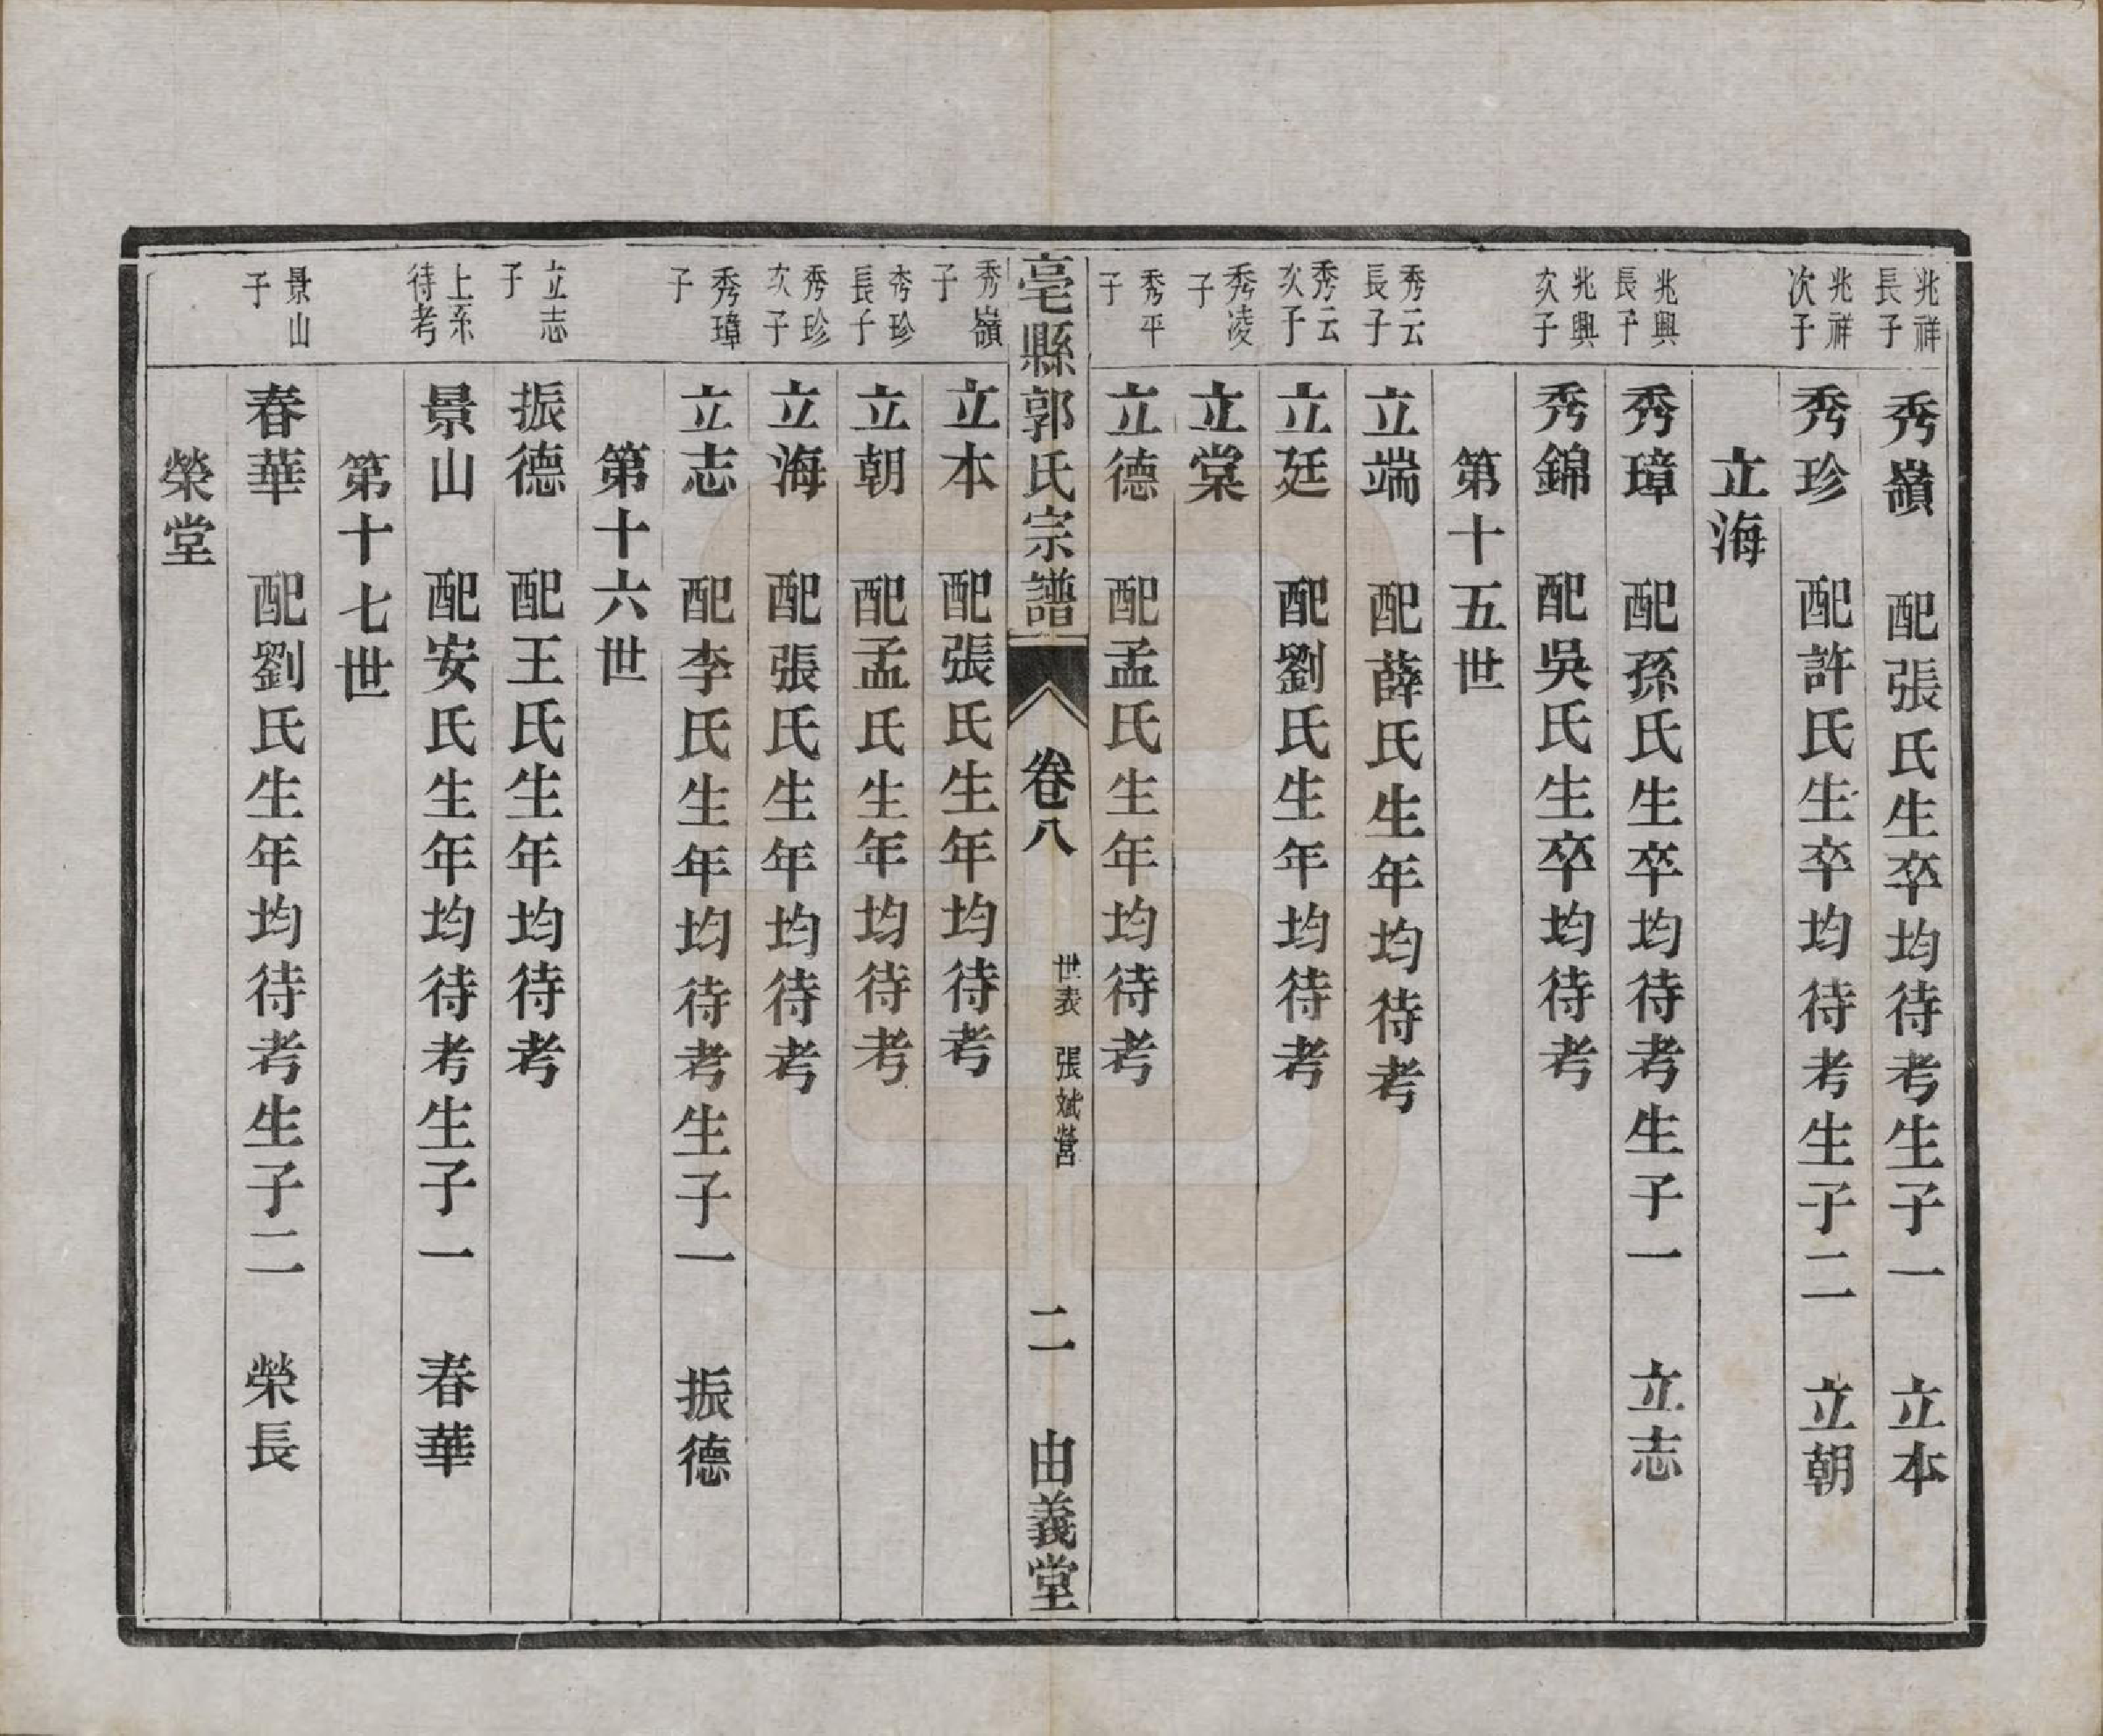 兆祥長子 秀嶺 配張氏生卒均待考生子一 立本
兆祥次子 秀珍 配許氏生卒均待考生子二 立朝
立海
兆興長子 秀璋 配孫氏生卒均待考生子一 立志
兆興次子 秀錦 配吳氏生卒均待考
第十五世
秀云長子 立端 配薛氏生年均待考
秀云次子 立廷 配劉氏生年均待考
秀凌子 立棠
秀平子 立德 配孟氏生年均待考
亳縣郭氏宗譜 卷八 世表 張斌營 二 由義堂
秀嶺子 立本 配張氏生年均待考
秀珍長子 立朝 配孟氏生年均待考
秀珍次子 立海 配張氏生年均待考
秀璋子 立志 配李氏生年均待考生子一 振德
第十六世
立志子 振德 配王氏生年均待考
上系待考 景山 配安氏生年均待考生子一 春華
第十七世
景山子 春華 配劉氏生年均待考生子二 榮長
榮堂